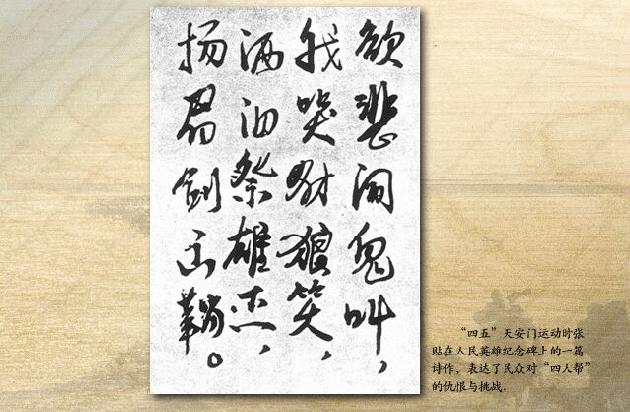 欲悲闻鬼叫，
我哭豺狼笑，
洒泪祭雄杰，
扬眉剑出鞘。
“四五”天安门运动时张
贴在人民英雄纪念碑上的一篇
诗作，表达了民众对“四人帮”
的仇恨与挑战．